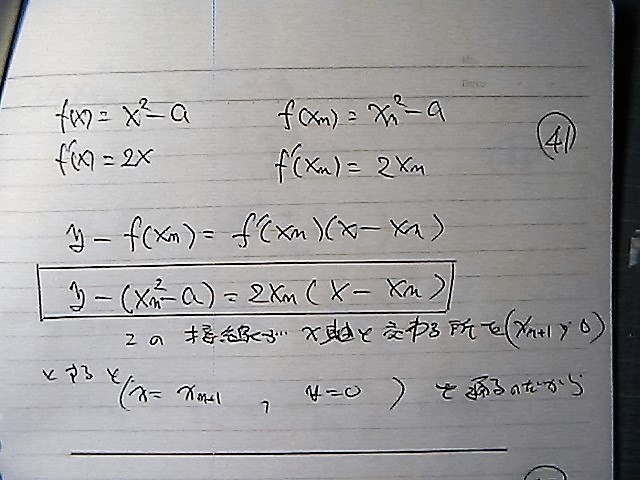 f(x) = x² - a f(xn) = xn² - a
(41)
f'(x) = 2x f'(xn) = 2xn
y - f(xn) = f'(xn)(x - xn)
y - (xn² - a) = 2xn(x - xn)
この接線が x軸と交わる所を(xn+1, 0)
とすると
(x = xn+1 , y = 0) を通るのだから